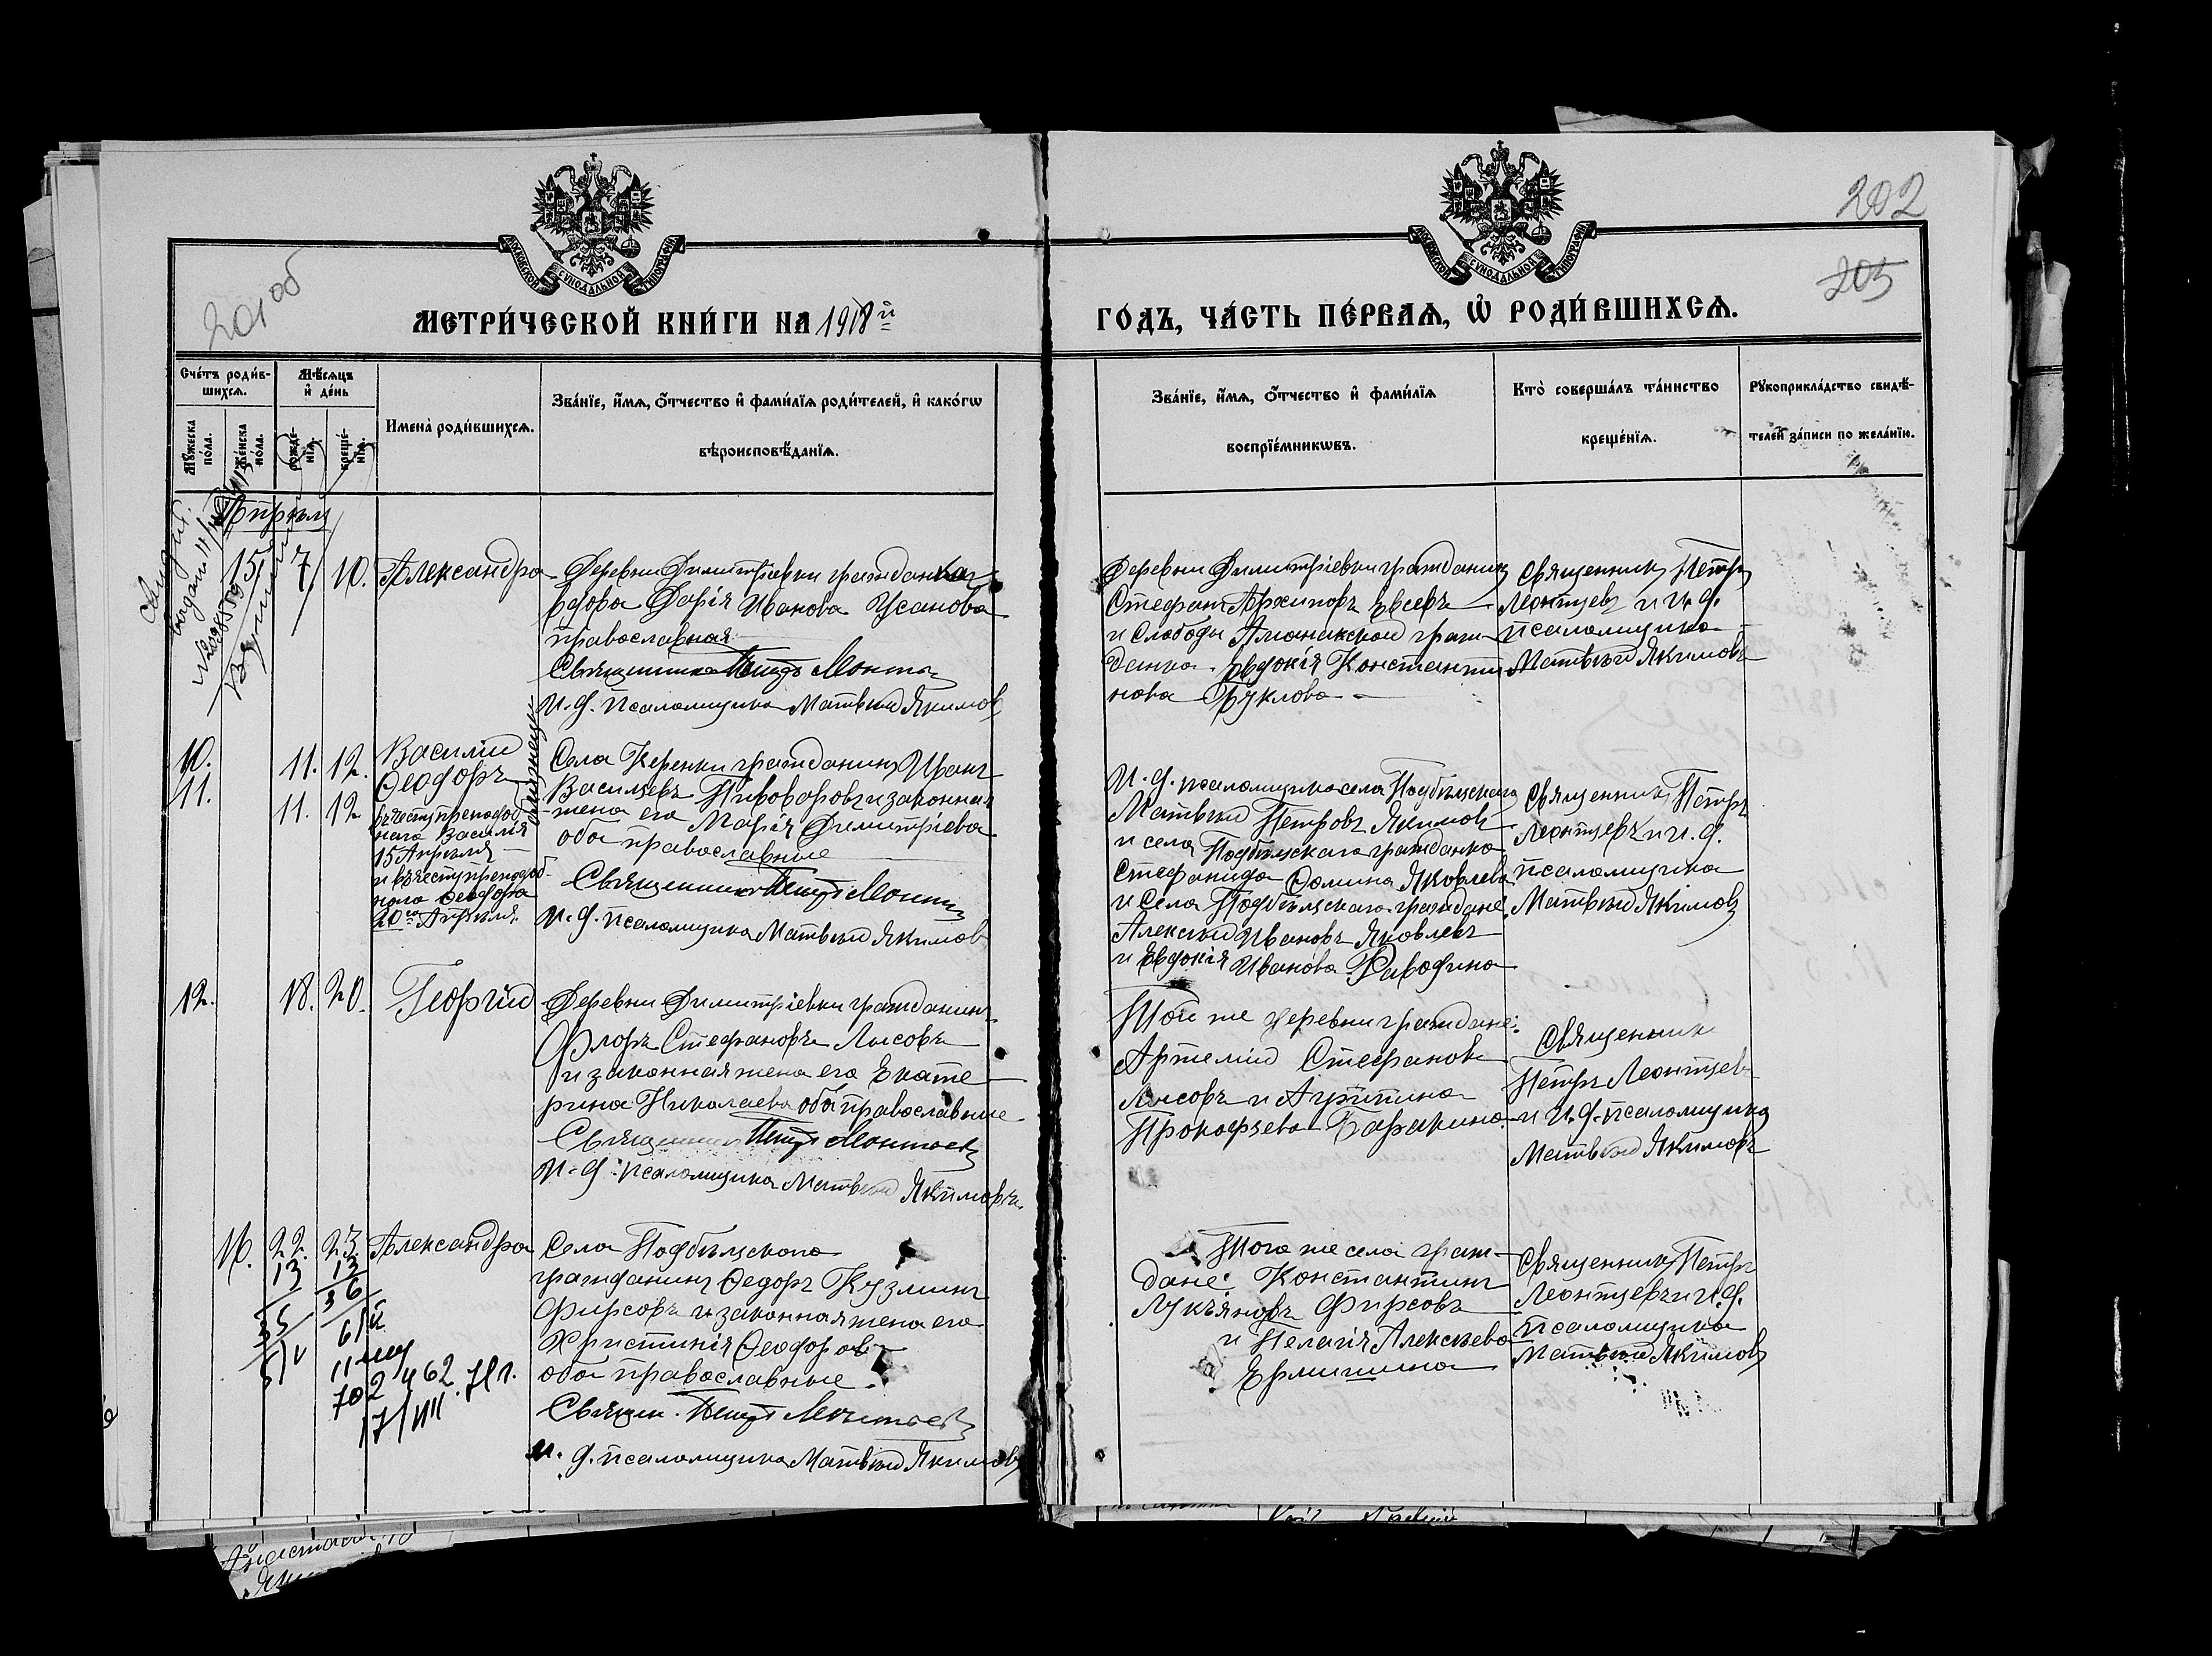 202
205
201 об
МОСКОВСКОЙ СѴНОДАЛЬНОЙ ТИПОГРАФІИ
МОСКОВСКОЙ СѴНОДАЛЬНОЙ ТИПОГРАФІИ
МЕТРИ́ЧЕСКОЙ КНИ́ГИ НА 1918й
ГО́ДЪ, ЧА́СТЬ ПЕ́РВАѦ, Ѡ҆ РОДИ́ВШИХСѦ.
Сче́тъ роди́в-
шихсѧ.
Мѹ́жеска по́ла.
Же́нска по́ла.
Мѣ́сѧцъ
и҆ де́нь
рожде́-
нїѧ.
креще́-
нїѧ.
Имена̀ роди́вшихсѧ.
Зва́нїе, и҆́мѧ, ѻ҆́тчество и҆ фами́лїѧ роди́телей, и҆ како́гѡ
вѣроисповѣ́данїѧ.
Зва́нїе, и҆́мѧ, ѻ҆́тчество и҆ фами́лїѧ
воспрїе́мникѡвъ.
Кто̀ соверша́лъ та́инство
креще́нїѧ.
Рѹкоприкла́дство свидѣ́-
телей за́писи по жела́нїю.
Апрѣль
15
7
10.
Александра
Деревни Димитріевки гражданка
вдова Дарія Иванова Усанова
православная
Священникъ Петръ Леонтьевъ
И. д. псаломщика Матвѣй Якимовъ
Деревни Димитріевки гражданинъ
Стефанъ Архиповъ Евсевъ
и Слободы Аманакской граж-
данка Евдокія Константи
нова Буклова
Священникъ Петръ
Леонтьевъ и И. д.
псаломщика
Матвѣй Якимовъ
10.
11.
11.
11.
12.
12
Василій
Ѳеодоръ
близнецы
въ честь преподоб-
наго Василія
15 Апрѣля
и въ честь преподоб-
наго Ѳеодора
20го Апрѣля.
Села Керенки гражданинъ Иванъ
Васильевъ Пивоваровъ и законная
жена его Марія Димитріева
оба православные
Священникъ Петръ Леонтьевъ
И. д. псаломщика Матвѣй Якимовъ
И. д. псаломщика села Подбѣльскаго
Матвѣй Петровъ Якимовъ
и села Подбѣльскаго гражданка
Стефанида Ѳомина Яковлева
и Села Подбѣльскаго граждане
Алексѣй Ивановъ Яковлевъ
и Евдокія Иванова
Священникъ Петръ
Леонтьевъ и И. д.
псаломщика
Матвѣй Якимовъ
12.
18.
20.
Георгій
Деревни Димитріевки гражданинъ
Флоръ Стефановъ Лысовъ
и законная жена его Екате
рина Николаева оба православные
Священникъ Петръ Леонтьевъ
И. д. псаломщика Матвѣй Якимовъ
Той же деревни граждане:
Артемій Стефановъ
Лысовъ и Агрипина
Прокофьева Баракина
Священникъ
Петръ Леонтьевъ
и И. д. псаломщика
Матвѣй Якимовъ
16.
22.
23.
13
13
35
36
11
702462
Александра
Села Подбѣльскаго
гражданинъ Ѳедоръ Кузминъ
Фирсовъ и законная жена его
Христинія Ѳеодорова
оба православные.
Священ. Петръ Леонтьевъ
И. д. псаломщика Матвѣй Якимовъ
Того же села граж-
дане: Константинъ
Лукьяновъ Фирсовъ
и Пелагія Алексѣева
Ермишина
Священникъ Петръ
Леонтьевъ и И. д.
псаломщика
Матвѣй Якимовъ